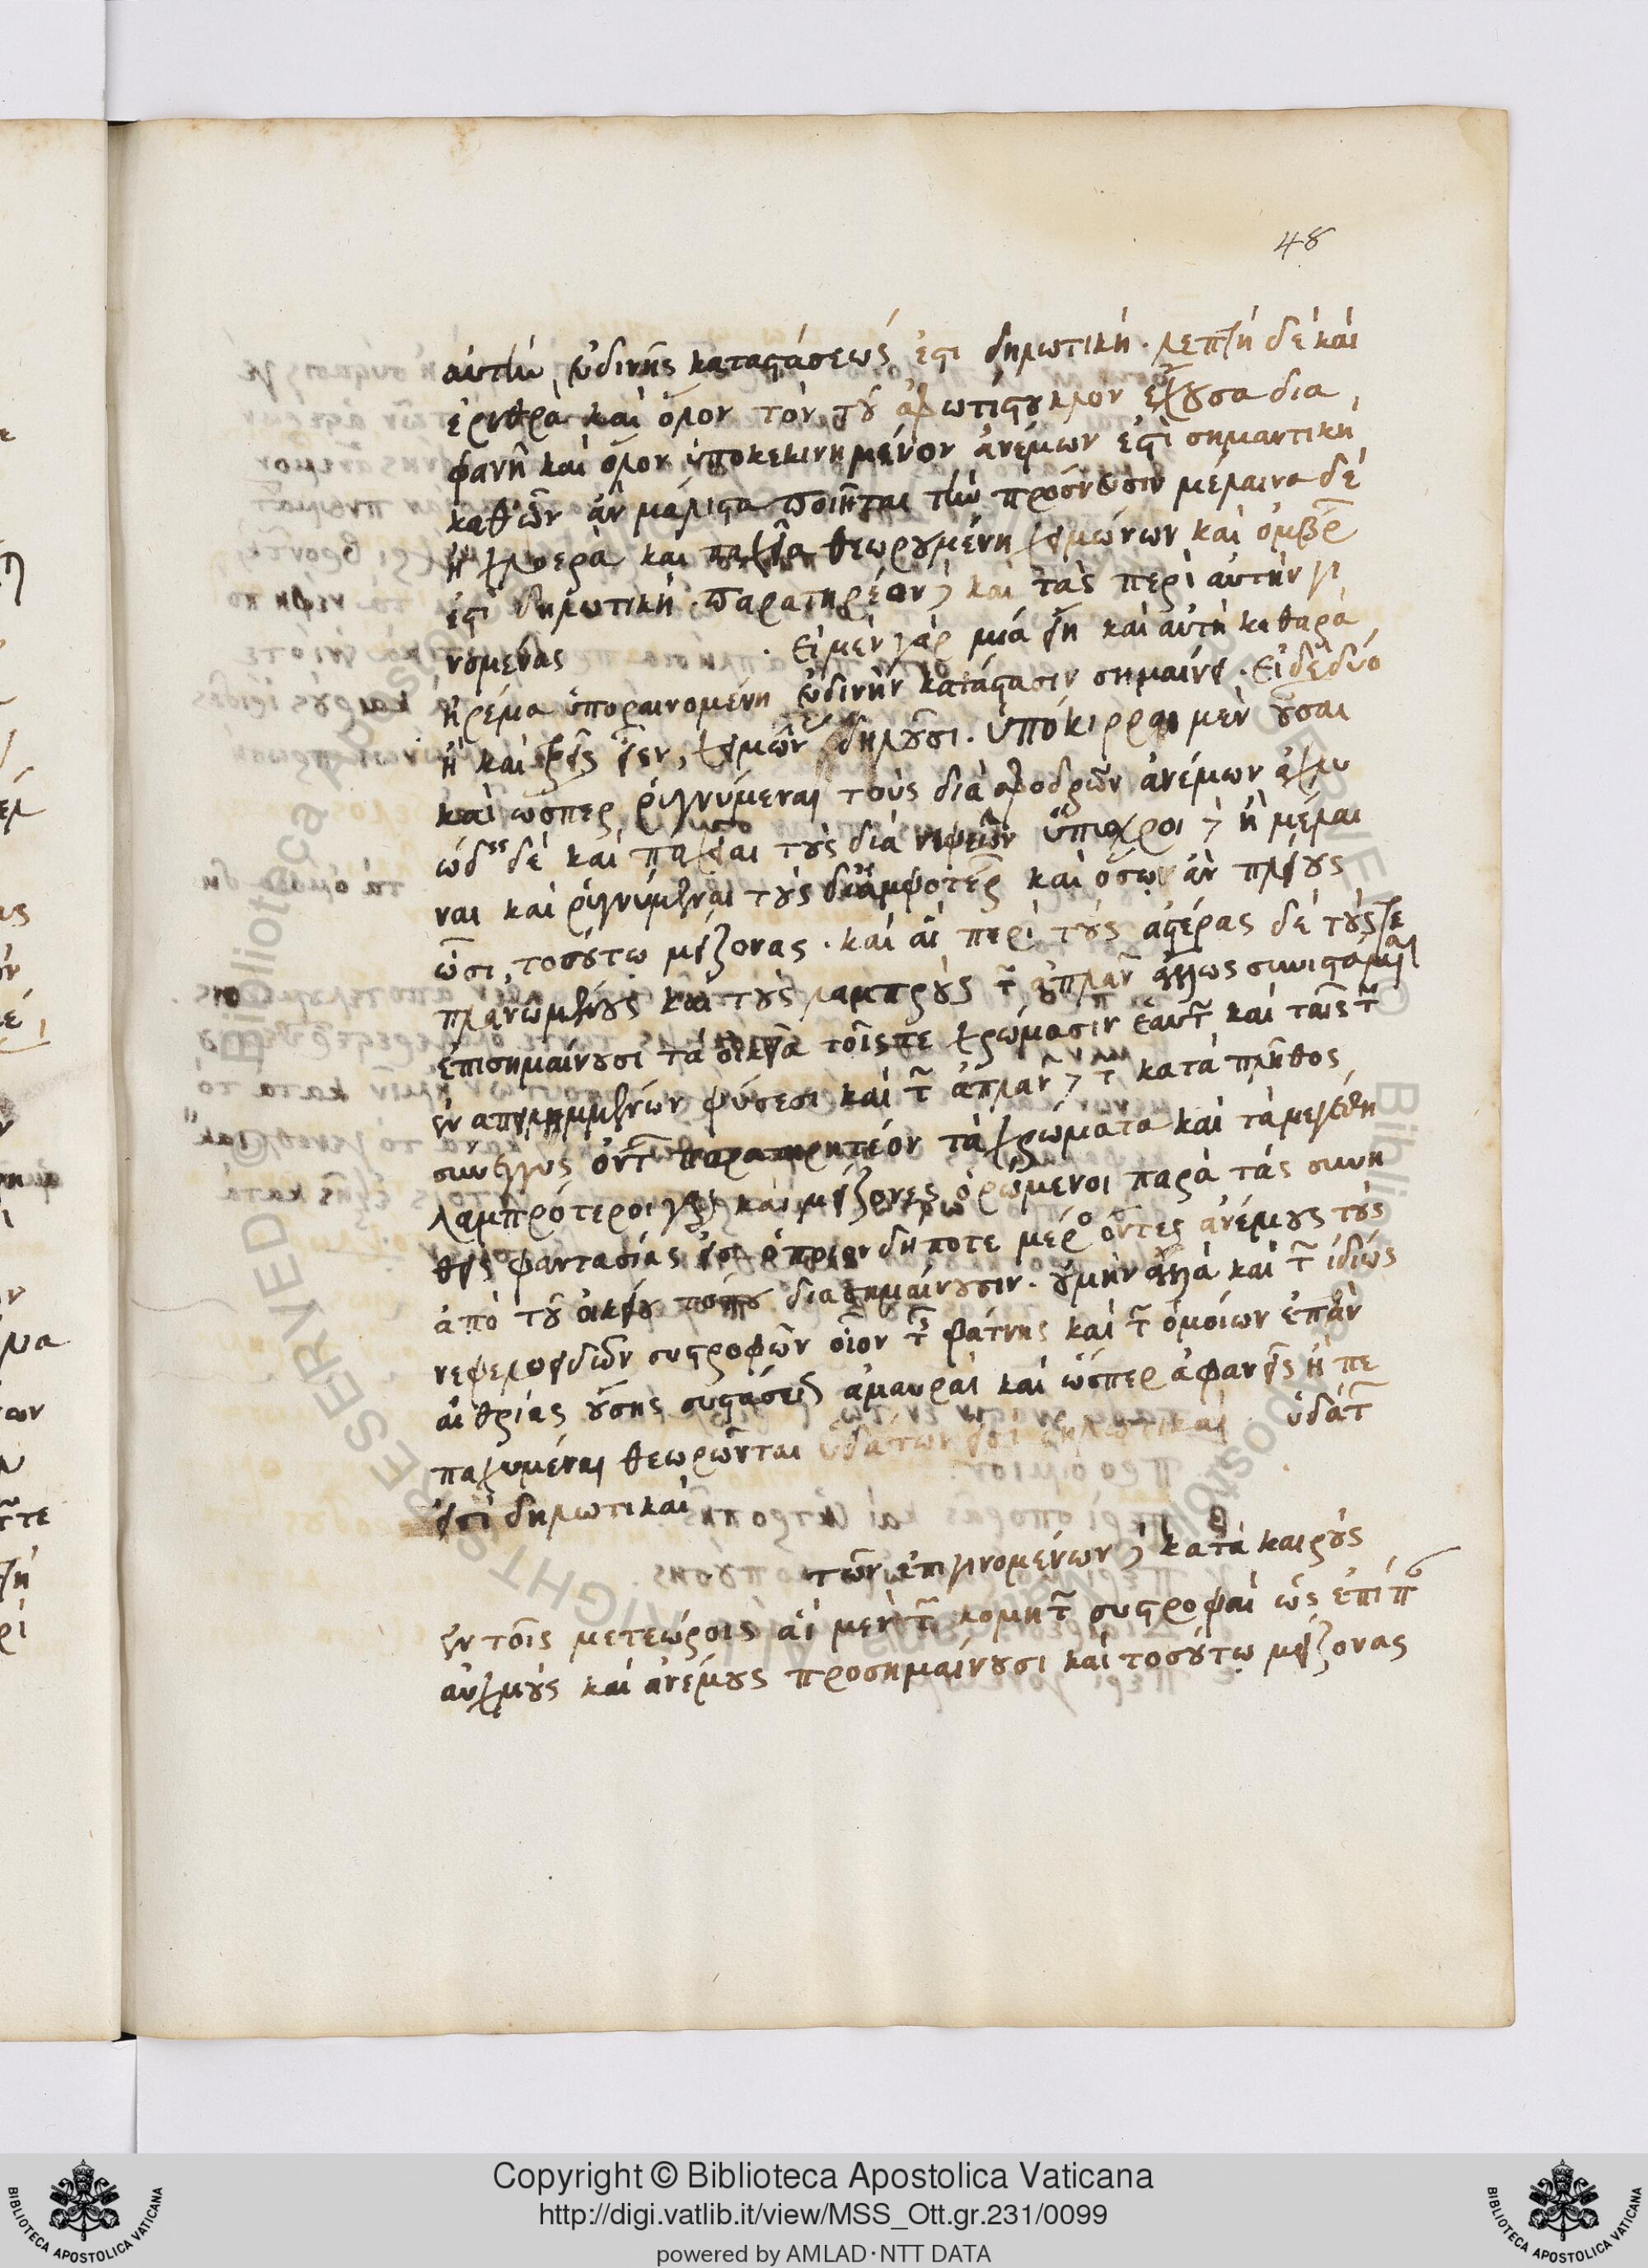 48
αὐτὴν εὐδινῆς καταστάσεώς ἐστι δηλωτική. λεπτὴ δὲ καὶ
ἐρυθρὰ καὶ ὅλον τὸν τοῦ ἀφωτίστου κύκλον ἔχουσα δια
φανῆ καὶ ὅλον ὑποκεκινημένον ἀνέμων ἐστὶ σημαντικὴ
καθ' ὧν ἂν μάλιστα ποιῆται τὴν πρόσνευσιν μέλαινα δὲ
ἢ χλωερὰ καὶ παχεῖα θεωρουμένη χειμώνων καὶ ὄμβρ
ἐστὶ δηλωτική. παρατηρέον δὲ καὶ τὰς περὶ αὐτὴν γι
νομένας . εἰ μὲν γὰρ μία εἴη καὶ αὐτὴ καθαρὰ
ἠρέμα ὑπομαραινομένη εὐδινὴν κατάστασιν σημαίνει. εἰ δὲ δύο
ἢ καὶ τρεῖς εἶεν, χειμῶν δηλοῦσι. ὑπόκιρραι μὲν οὖσαι
καὶ ὥσπερ ῥηγνύμεναι τοὺς διὰ σφοδρῶν ἀνέμων ἀχλυ
ώδεις δὲ καὶ παχεῖαι τοὺς διὰ νιφετῶν ὕπωχροι δὲ ἢ μέλαι
ναι καὶ ῥηγνύμεναι τοὺς δι' ἀμφοτέρ καὶ ὅσῳ ἂν πλείους
ὦσι, τοσούτῳ μείζονας. καὶ αἱ περὶ τοὺς ἀστέρας δὲ τούς τε
πλανωμένους καὶ τοὺς λαμπροὺς τ ἀπλαν ἅλως συνιστάμεναι
ἐπισημαίνουσι τὰ οἰκεῖα τοῖς τε χρώμασιν ἑαυτ καὶ ταῖς τ
ἐναπειλημμένων φύσεσι καὶ τ ἀπλαν δὲ τ κατὰ πλῆθος
σύνεγγυς ὄντ παρατηρητέον τὰ χρώματα καὶ τὰ μεγέθη
λαμπρότεροι γὰρ καὶ μείζονες ὁρώμενοι παρὰ τὰς συνή
θεις φαντασίας εἰς ὁποιονδήποτε μέρος ὄντες ἀνέμους τοὺς
ἀπὸ τοῦ οἰκείου τόπου διασημαίνουσιν. οὐ μὴν ἀλλὰ καὶ τ ἰδίως
νεφελοειδῶν συστροφῶν οἷον τ φάτνης καὶ τ ὁμοίων ἐπὰν
αἰθρίας οὔσης συστάσεις ἀμαυραὶ καὶ ὥσπερ ἀφανεῖς ἢ πε
παχυμέναι θεωρῶνται ὑδάτων εἰσὶ δηλωτικαί ὑδάτ
εἰσὶ δηλωτικαὶ
τῶν ἐπιγινομένων δὲ κατὰ καιροὺς
ἐν τοῖς μετεώροις αἱ μὲν τ κομητ συστροφαὶ ὡς ἐπίπ
αὐχμοὺς καὶ ἀνέμους προσημαίνουσι καὶ τοσούτῳ μείζονας
Copyright © Biblioteca Apostolica Vaticana
http://digi.vatlib.it/view/MSS_Ott.gr.231/0099
powered by AMLAD·NTT DATA